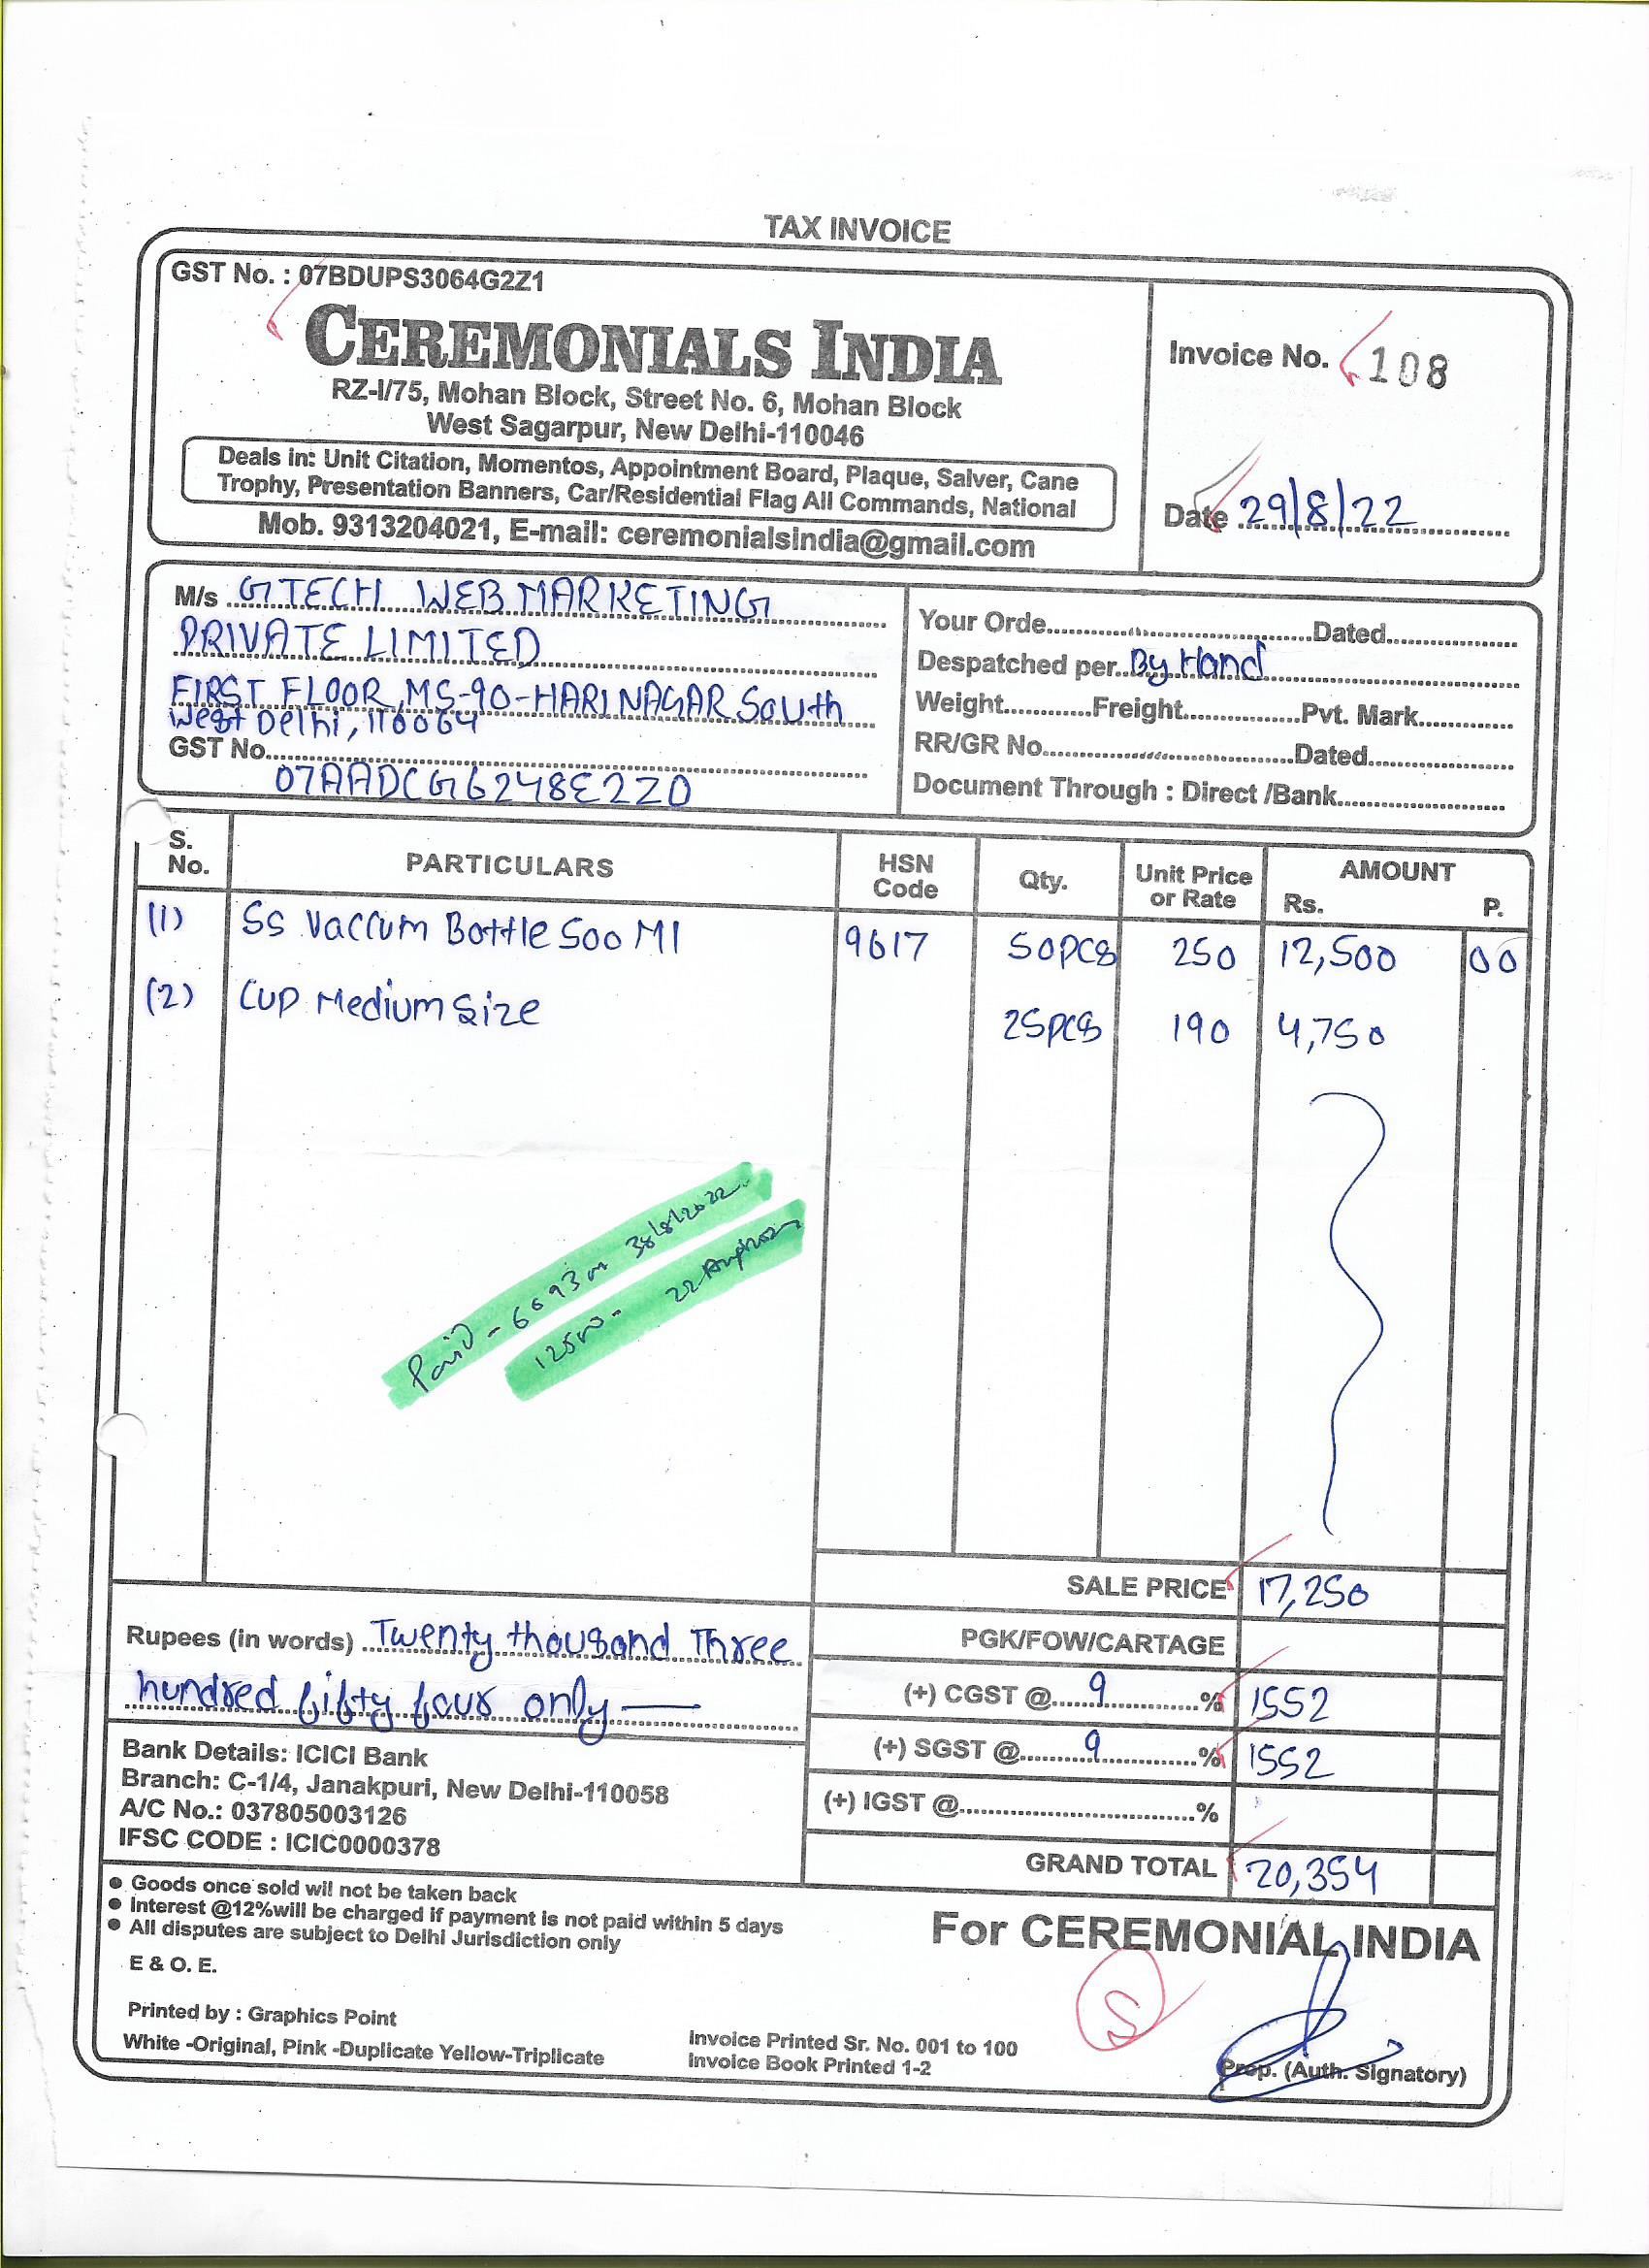 TAX INVOICE
GST No. : 07BDUPS3064G2Z1
CEREMONIALS INDIA
RZ-I/75, Mohan Block, Street No. 6, Mohan Block
West Sagarpur, New Delhi-110046
Deals in: Unit Citation, Momentos, Appointment Board, Plaque, Salver, Cane
Trophy, Presentation Banners, Car/Residential Flag All Commands, National
Mob. 9313204021, E-mail: ceremonialsindia@gmail.com
Invoice No. 108
Date 29/8/22
M/s GTECH WEB MARKETING
PRIVATE LIMITED
FIRST FLOOR, MS-90-HARI NAGAR South
West Delhi, 110064
GST No.
07AADCG6248E2ZO
Your Orde Dated
Despatched per By Hand
Weight Freight Pvt. Mark
RR/GR No. Dated
Document Through : Direct /Bank
S. No. PARTICULARS HSN Code Qty. Unit Price or Rate AMOUNT Rs. P.
(1) SS Vaccum Bottle 500 Ml 9617 50pcs 250 12,500 00
(2) Cup Medium Size 25pcs 190 4,750
Paid - 6693
SALE PRICE 17,250
Rupees (in words) Twenty thousand Three
hundred fifty four only
PGK/FOW/CARTAGE
(+) CGST @ 9 % 1552
(+) SGST @ 9 % 1552
(+) IGST @ %
GRAND TOTAL 20,354
Bank Details: ICICI Bank
Branch: C-1/4, Janakpuri, New Delhi-110058
A/C No.: 037805003126
IFSC CODE : ICIC0000378
● Goods once sold wil not be taken back
● Interest @12%will be charged if payment is not paid within 5 days
● All disputes are subject to Delhi Jurisdiction only
E & O. E.
For CEREMONIAL INDIA
S
Printed by : Graphics Point
White -Original, Pink -Duplicate Yellow-Triplicate
Invoice Printed Sr. No. 001 to 100
Invoice Book Printed 1-2
Prop. (Auth. Signatory)